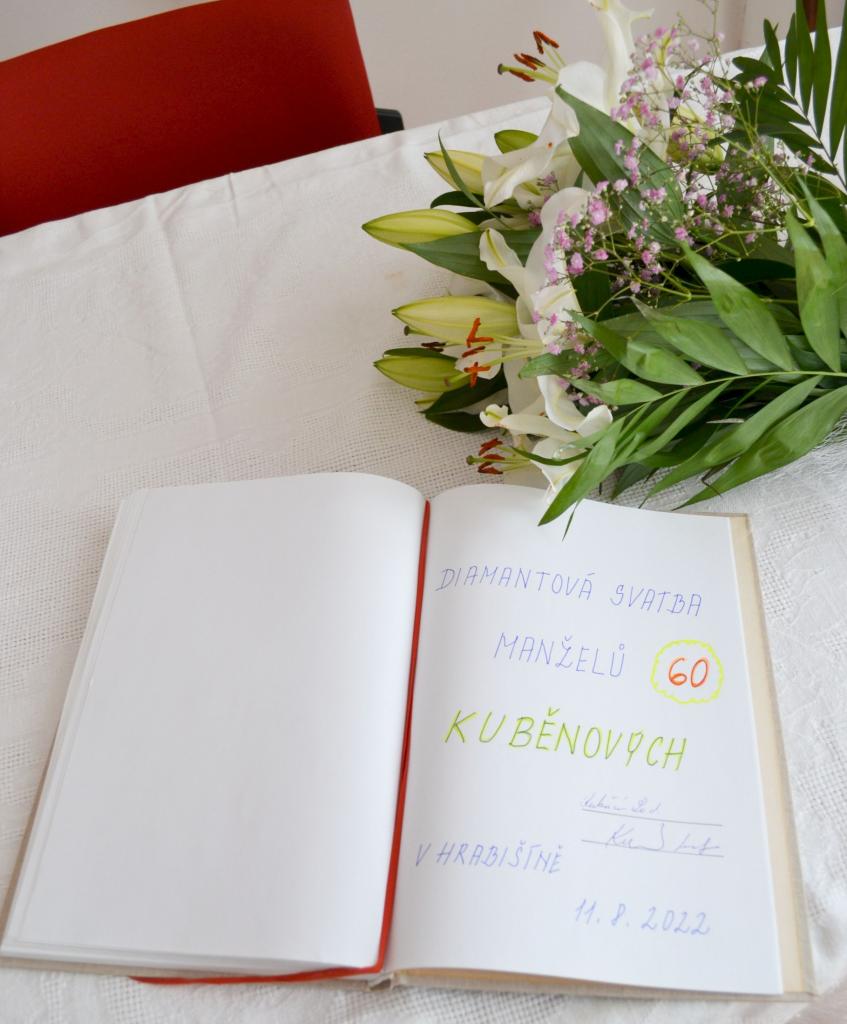 DIAMANTOVÁ SVATBA
MANŽELŮ 60
KUBĚNOVÝCH
V HRABIŠÍNĚ
11. 8. 2022